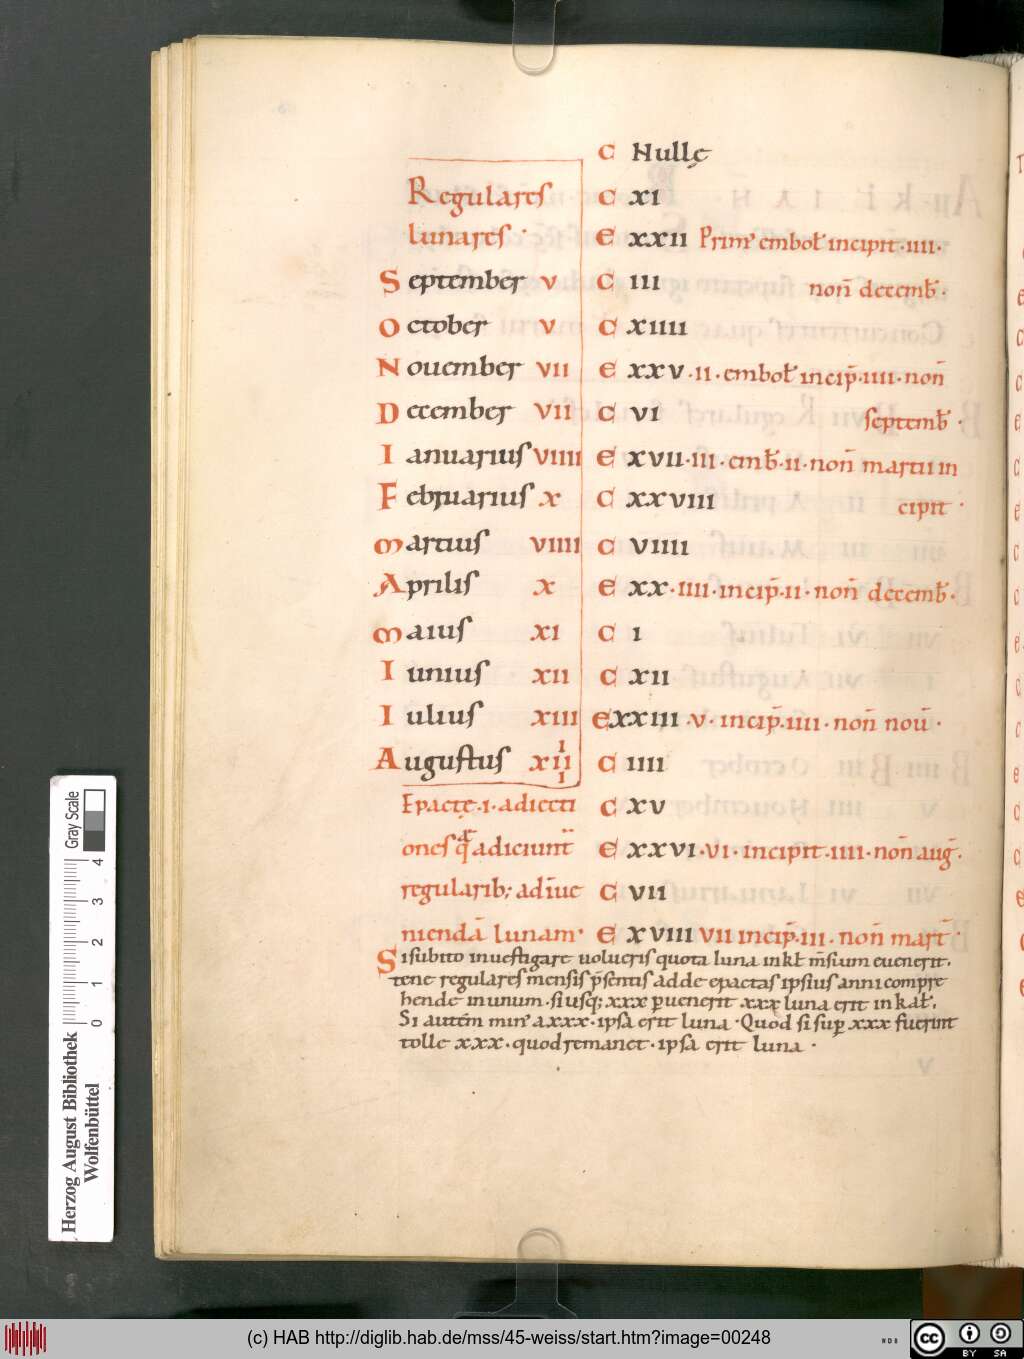 C Nullę
Regulares C XI
lunares · E XXII Prim᾽ emboł incipit · IIII ·
September V C III non̄ decemb̄ ·
October V C XIIII
Nouember VII E XXV · II · emboł incip̄ · IIII · non̄
December VII C VI septemb̄ ·
Ianuarius VIIII E XVII · III · emb̄ · II · non̄ martii in
Februarius X C XXVIII cipit ·
Martius VIIII C VIIII
Aprilis X E XX · IIII · incip̄ · II · non̄ decemb̄ ·
Maius XI C I
Iunius XII C XII
Iulius XIII E XXIII · V · incip̄ · IIII · non̄ nou̅ ·
Augustus XIII C IIII
Epactę · i · adiecti C XV
ones q̄ adiciunt̄ E XXVI · VI · incipit · IIII · non̄ aug̅ ·
regularib; ad īue C VII
niendā lunam · E XVIII VII incip̄ · III · non̄ mart̄ ·
Si subito inuestigare uolueris quota luna in kł m̄sium euenerit ·
tene regulares mensis p̄sentis adde epactas ipsius anni compre
hende in unum · si usq; xxx ꝑuenerit xxx luna erit in kał ·
Si autem min᾽ a xxx · ipsa erit luna · Quod si suꝑ xxx fuerint
tolle xxx · quod remanet · ipsa erit luna ·
Gray Scale
0 1 2 3 4
Herzog August Bibliothek
Wolfenbüttel
(c) HAB http://diglib.hab.de/mss/45-weiss/start.htm?image=00248
cc BY SA